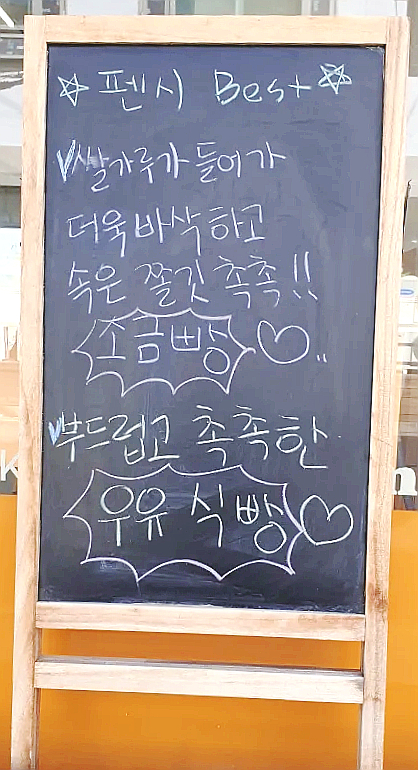 ☆ 펜시 Best ☆
✓쌀가루가 들어가
더욱 바삭하고
속은 쫄깃 촉촉!!
소금빵 ♡..
✓부드럽고 촉촉한
우유 식빵 ♡